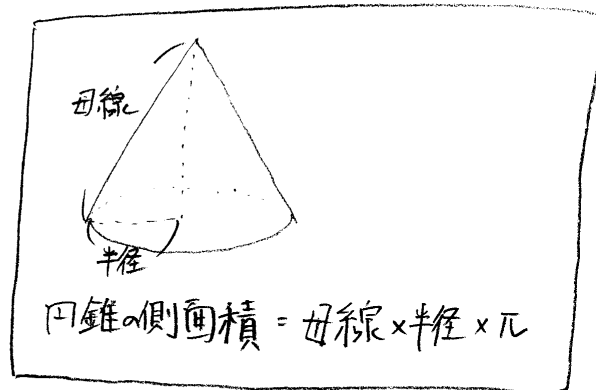 母線
半径
円錐の側面積 = 母線×半径×π